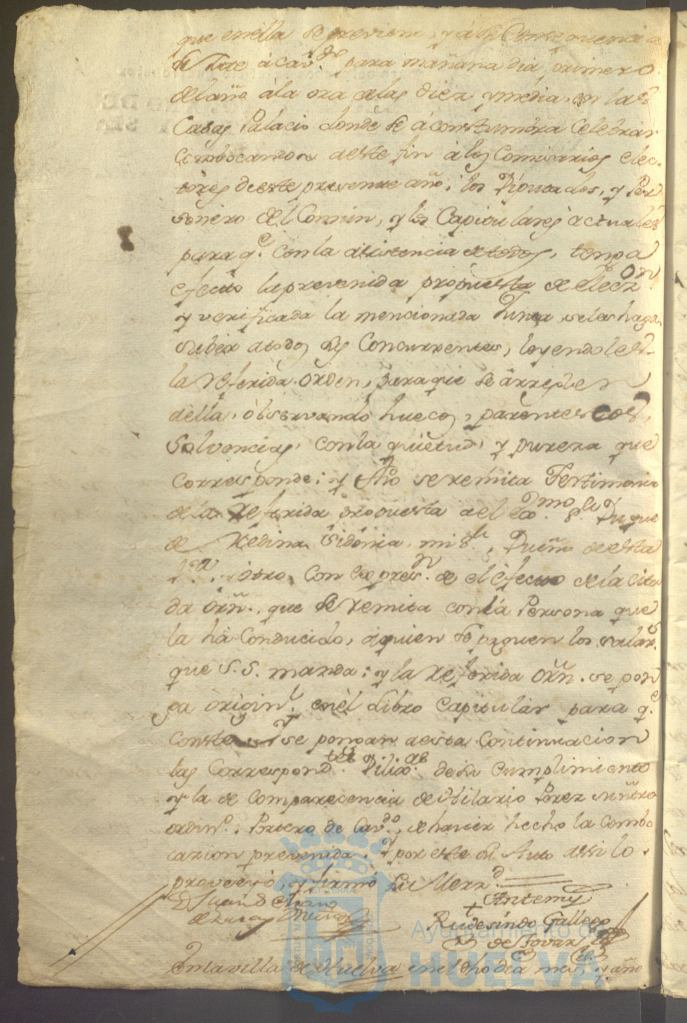 que en ella se previene, y á su Consequencia
se Trate á cav.do para mañana dia primero
del año á la ora de las diez y media en las
Casas Palacio donde se acostumbra Celebrar
Combocandose á este fin á los Comisarios elec-
tores de este presente año; los Diputados, y Per-
sonero del Comun, y los Capitulares actuales
para q.e con la asistencia de todos, tenga
efecto la prevenida propuesta de eleccion
y verificada la mencionada Junta se les haga
saber a todos los Concurrentes, leyendoles
la referida orden, para que se arreglen
á ella, observando huecos, parentescos,
Solvencias, con la quietud, y pureza que
corresponde; y fho se remita Testimonio
de la Referida propuesta al Exmo. S.or Duque
de Medina Sidonia, mi S.r, Dueño de esta
V.a, y otro, con expres.n de el efecto de la cita
da orn., que se remita con la Persona que
la ha Conducido, á quien se paguen los salar.s
que S.S. manda; y la referida Orn. se pon
ga origin.l en el libro Capitular para q.e
Conste, y se pongan á esta Continuacion
las Correspond.tes Dilig.as de su Cumplimiento
y la de Comparecencia de Hilario Perez
ordin.o Portero de Cav.do, de haver hecho la Combo
cazion prevenida. Y por este su Auto assi lo
proveyó, y firmó su Merz.d
Antemy
Rudesindo Gallego
de Tovar
En la villa de Huelva en el dho dia mes, y año
Ayuntamiento de
HUELVA